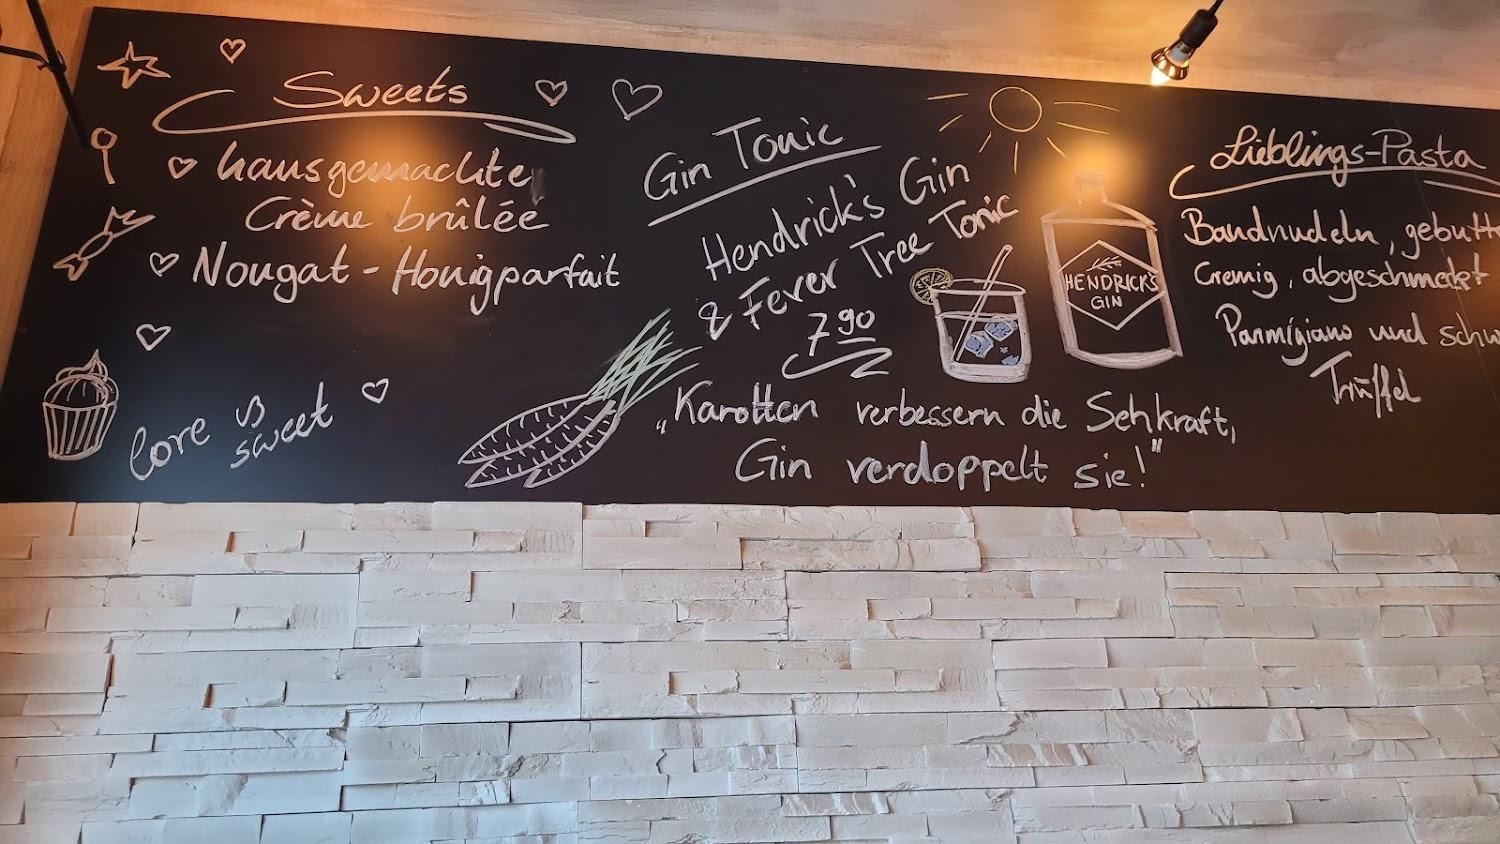 Sweets
hausgemachte
Crème brûlée
Nougat - Honigparfait
love is
sweet
Gin Tonic
Hendrick's Gin
& Fever Tree Tonic
7 90
HENDRICK'S
GIN
„Karotten verbessern die Sehkraft,
Gin verdoppelt sie!"
Lieblings-Pasta
Bandnudeln, gebutte
Cremig, abgeschmeckt
Parmigiano und schw
Trüffel